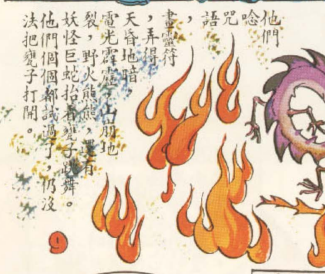 他們
唸
咒
語
，
畫靈符
，弄得
天昏地暗。
電光霹靂，山崩地
裂，野火熊熊，還有
妖怪巨蛇抬着甕子跳舞。
他們個個都試過了，仍沒
法把甕子打開。
9